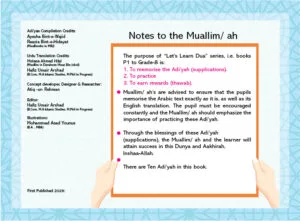 Ad'iyae Compilation Credits
Ayesha Bint-e-Wajid
Urdu Translation Credits
Hafiz Uzair Arshad
Concept developer, Designer & Researcher:
Atiq -ur- Rehman
Editor:
Hafiz Uzair Arshad
Illustrations:
Mohammad Asad Younus
First Published 2023
Notes to the Muallim/ ah
The purpose of "Let's Learn Dua" series, i.e. books
P1 to Grade-8 is:
1. To memorise the Ad'iyah (supplications).
2. To practice
3. To earn rewards (thawab).
Muallim/ ah's are advised to ensure that the pupils
memorise the Arabic text exactly as it is, as well as its
English translation. The pupil must be encouraged
constantly and the Muallim/ ah should emphasize the
importance of practicing these Ad'iyah.
Through the blessings of these Ad'iyah
(supplications), the Muallim/ ah and the learner will
attain success in this Dunya and Aakhirah,
Inshaa-Allah.
There are Ten Ad'iyah in this book.